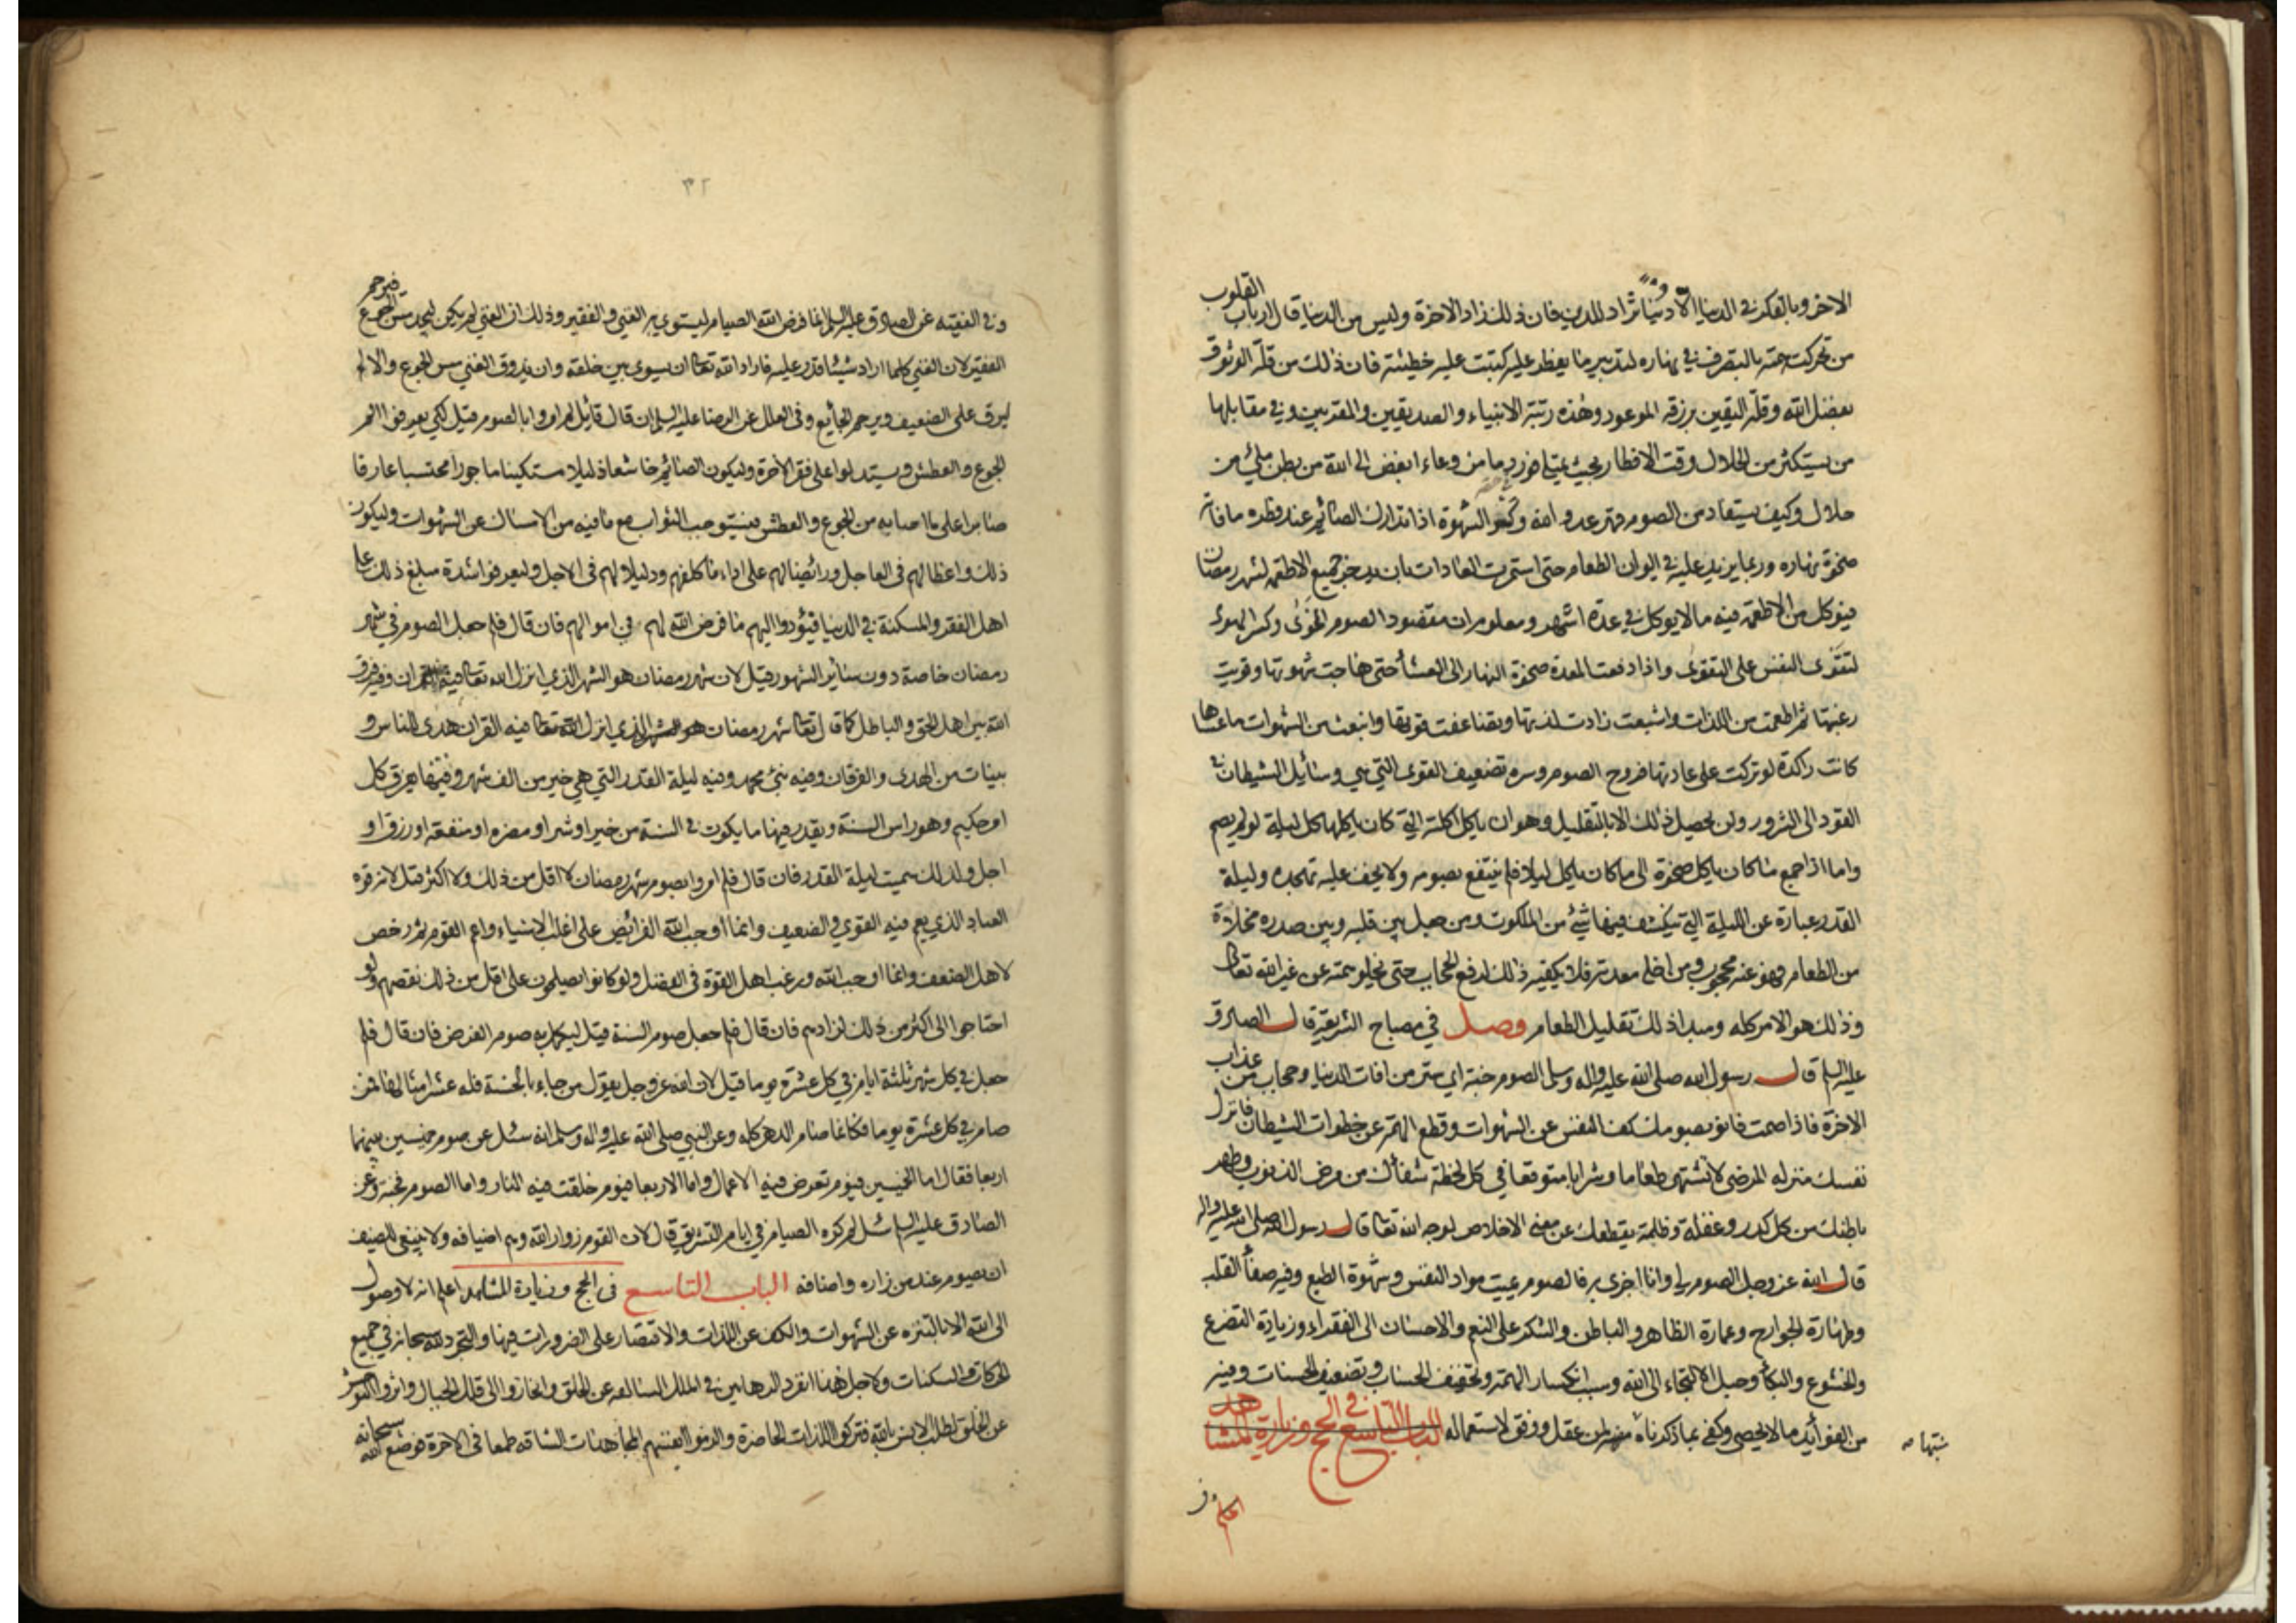 الاخر وبالفكر في الدنيا الا دنيا تراد للدين فان ذلك زاد الاخرة وليس من الدنيا قال ارباب القلوب
من تحركت همته بالتصرف في نهاره لتدبير ما يفطر عليه كتبت عليه خطيئة فان ذلك من قلة الوثوق
بفضل الله وقلة اليقين برزقه الموعود وهذه رتبة الانبياء والصديقين والمقربين وفي مقابلها
من يستكثر من الحلال وقت الافطار بحيث يمتلئ فورد ما من وعاء ابغض الى الله من بطن ملئ من
حلال وكيف يستفاد من الصوم قهر عدو الله وكسر الشهوة اذا تدارك الصائم عند فطره ما فاته
ضحوة نهاره وربما يزيد عليه في الوان الطعام حتى استمرت العادات بان يدخر جميع الاطعمة لشهر رمضان
فيؤكل من الاطعمة فيه ما لا يوكل في عدة اشهر ومعلوم ان مقصود الصوم الخوى وكسر الهوى
لتقوى النفس على التقوى واذا دفعت المعدة ضحوة النهار الى العشاء حتى هاجت شهوتها وقويت
رغبتها ثم اطعمت من اللذات واشبعت زادت لذتها وتضاعفت قوتها وانبعث من الشهوات ما عساها
كانت راكدة لو تركت على عادتها فروح الصوم وسره تضعيف القوى التي هي وسائل الشيطان في
القود الى الشرور ولن يحصل ذلك الا بالتقليل وهو ان ياكل اكلته التي كان ياكلها كل ليلة لو لم يصم
واما اذا جمع ما كان ياكل ضحوة الى ما كان ياكل ليلا فلم ينتفع بصومه ولا يخف عليه تهجده وليلة
القدر عبارة عن الليلة التي ينكشف فيها شئ من الملكوت ومن جعل بين قلبه وبين صدره مخلاة
من الطعام فهو عنه محجوب ومن اخلى معدته فلا يكفيه ذلك لرفع الحجاب حتى يخلو همته عن غير الله تعالى
وذلك هو الامر كله ومبدا ذلك تقليل الطعام وصل في مصباح الشريعة قال الصادق
عليه السلم قال رسول الله صلى الله عليه واله وسلم الصوم جنة اي ستر من افات الدنيا وحجاب من عذاب
الاخرة فاذا صمت فانو بصومك كف النفس عن الشهوات وقطع الهمة عن خطوات الشيطان فانزل
نفسك منزله المرضى لا تشتهى طعاما وشرابا متوقعا في كل لحظة شفاك من مرض الذنوب وطهر
باطنك من كل كدر وغفلة وظلمة يقطعك عن معنى الاخلاص لوجه الله تعالى قال رسول الله صلى الله عليه واله
قال الله عز وجل الصوم لي وانا اجزى به فالصوم يميت مواد النفس وشهوة الطبع وفيه صفاء القلب
وطهارة الجوارح وعمارة الظاهر والباطن والشكر على النعم والاحسان الى الفقراء وزيادة التضرع
والخشوع والبكاء وحبل الالتجاء الى الله وسبب انكسار الهمة وتخفيف الحساب وتضعيف الحسنات وفيه
من الفوائد ما لا يحصى وكفى بما ذكرناه منبها لمن عقل ووفق لاستعماله الباب التاسع في الحج وزيارة المشاهد
اعلم
٣٢
وفي الفقيه عن الصادق عليه السلم انما فرض الله الصيام ليستوي به الغني والفقير وذلك ان الغني لم يكن ليجد مس الجوع فيرحم
الفقير لان الغني كلما اراد شيئا قدر عليه فاراد الله تعالى ان يسوى بين خلقه وان يذوق الغني مس الجوع والالم
ليرق على الضعيف ويرحم الجائع وفي العلل عن الرضا عليه السلم ان قال قائل لم امروا بالصوم قيل لكي يعرفوا الم
الجوع والعطش ويستدلوا على فقر الاخرة وليكون الصائم خاشعا ذليلا مستكينا ماجورا محتسبا عارفا
صابرا على ما اصابه من الجوع والعطش فيستوجب الثواب مع ما فيه من الامساك عن الشهوات وليكون
ذلك واعظا لهم في العاجل ورائضا لهم على اداء ما كلفهم ودليلا لهم في الاجل وليعرفوا شدة مبلغ ذلك على
اهل الفقر والمسكنة في الدنيا فيؤدوا اليهم ما فرض الله لهم في اموالهم فان قال فلم جعل الصوم في شهر
رمضان خاصة دون سائر الشهور قيل لان شهر رمضان هو الشهر الذي انزل الله تعالى فيه القران وفيه فرق
الله بين اهل الحق والباطل كما قال تعالى شهر رمضان هو الشهر الذي انزل الله تعالى فيه القران هدى للناس و
بينات من الهدى والفرقان وفيه نبئ محمد وفيه ليلة القدر التي هي خير من الف شهر وفيها يفرق كل
امر حكيم وهو راس السنة ويقدر فيها ما يكون في السنة من خير او شر او مضره او منفعة او رزق او
اجل ولذلك سميت ليلة القدر فان قال فلم امروا بصوم شهر رمضان لا اقل من ذلك ولا اكثر قيل لانه قوة
العباد الذي يعم فيه القوي والضعيف وانما اوجب الله الفرائض على اغلب الاشياء واعم القوم ثم رخص
لاهل الضعف وانما اوجب الله ورغب اهل القوة في الفضل ولو كانوا يصلحون على اقل من ذلك لنقصهم ولو
احتاجوا الى اكثر من ذلك لزادهم فان قال فلم جعل صوم السنة قيل ليكمل به صوم الفرض فان قال فلم
جعل في كل شهر ثلثة ايام في كل عشرة يوما قيل لان الله عز وجل يقول من جاء بالحسنة فله عشر امثالها فمن
صام في كل عشرة يوما فكانما صام الدهر كله وعن النبي صلى الله عليه واله وسلم انه سئل عن صوم خميسين بينهما
اربعا فقال اما الخميس فيوم تعرض فيه الاعمال واما الاربعا فيوم خلقت فيه النار واما الصوم فجنة وعن
الصادق عليه السلم سئل لم كره الصيام في ايام التشريق قال لان القوم زوار الله وهم اضيافه ولا ينبغي للضيف
ان يصوم عند من زاره واضافه الباب التاسع في الحج وزيارة المشاهد اعلم انه لا وصول
الى الله الا بالتنزه عن الشهوات والكف عن اللذات والاقتصار على الضرورات فيها والتجرد لله سبحانه في جميع
الحركات والسكنات ولاجل هذا انفرد الرهابين في الملل السالفه عن الخلق وانحازوا الى قلل الجبال واثروا التوحش
عن الخلق لطلب الانس بالله فتركوا اللذات الحاضرة والزموا انفسهم المجاهدات الشاقه طمعا في الاخرة